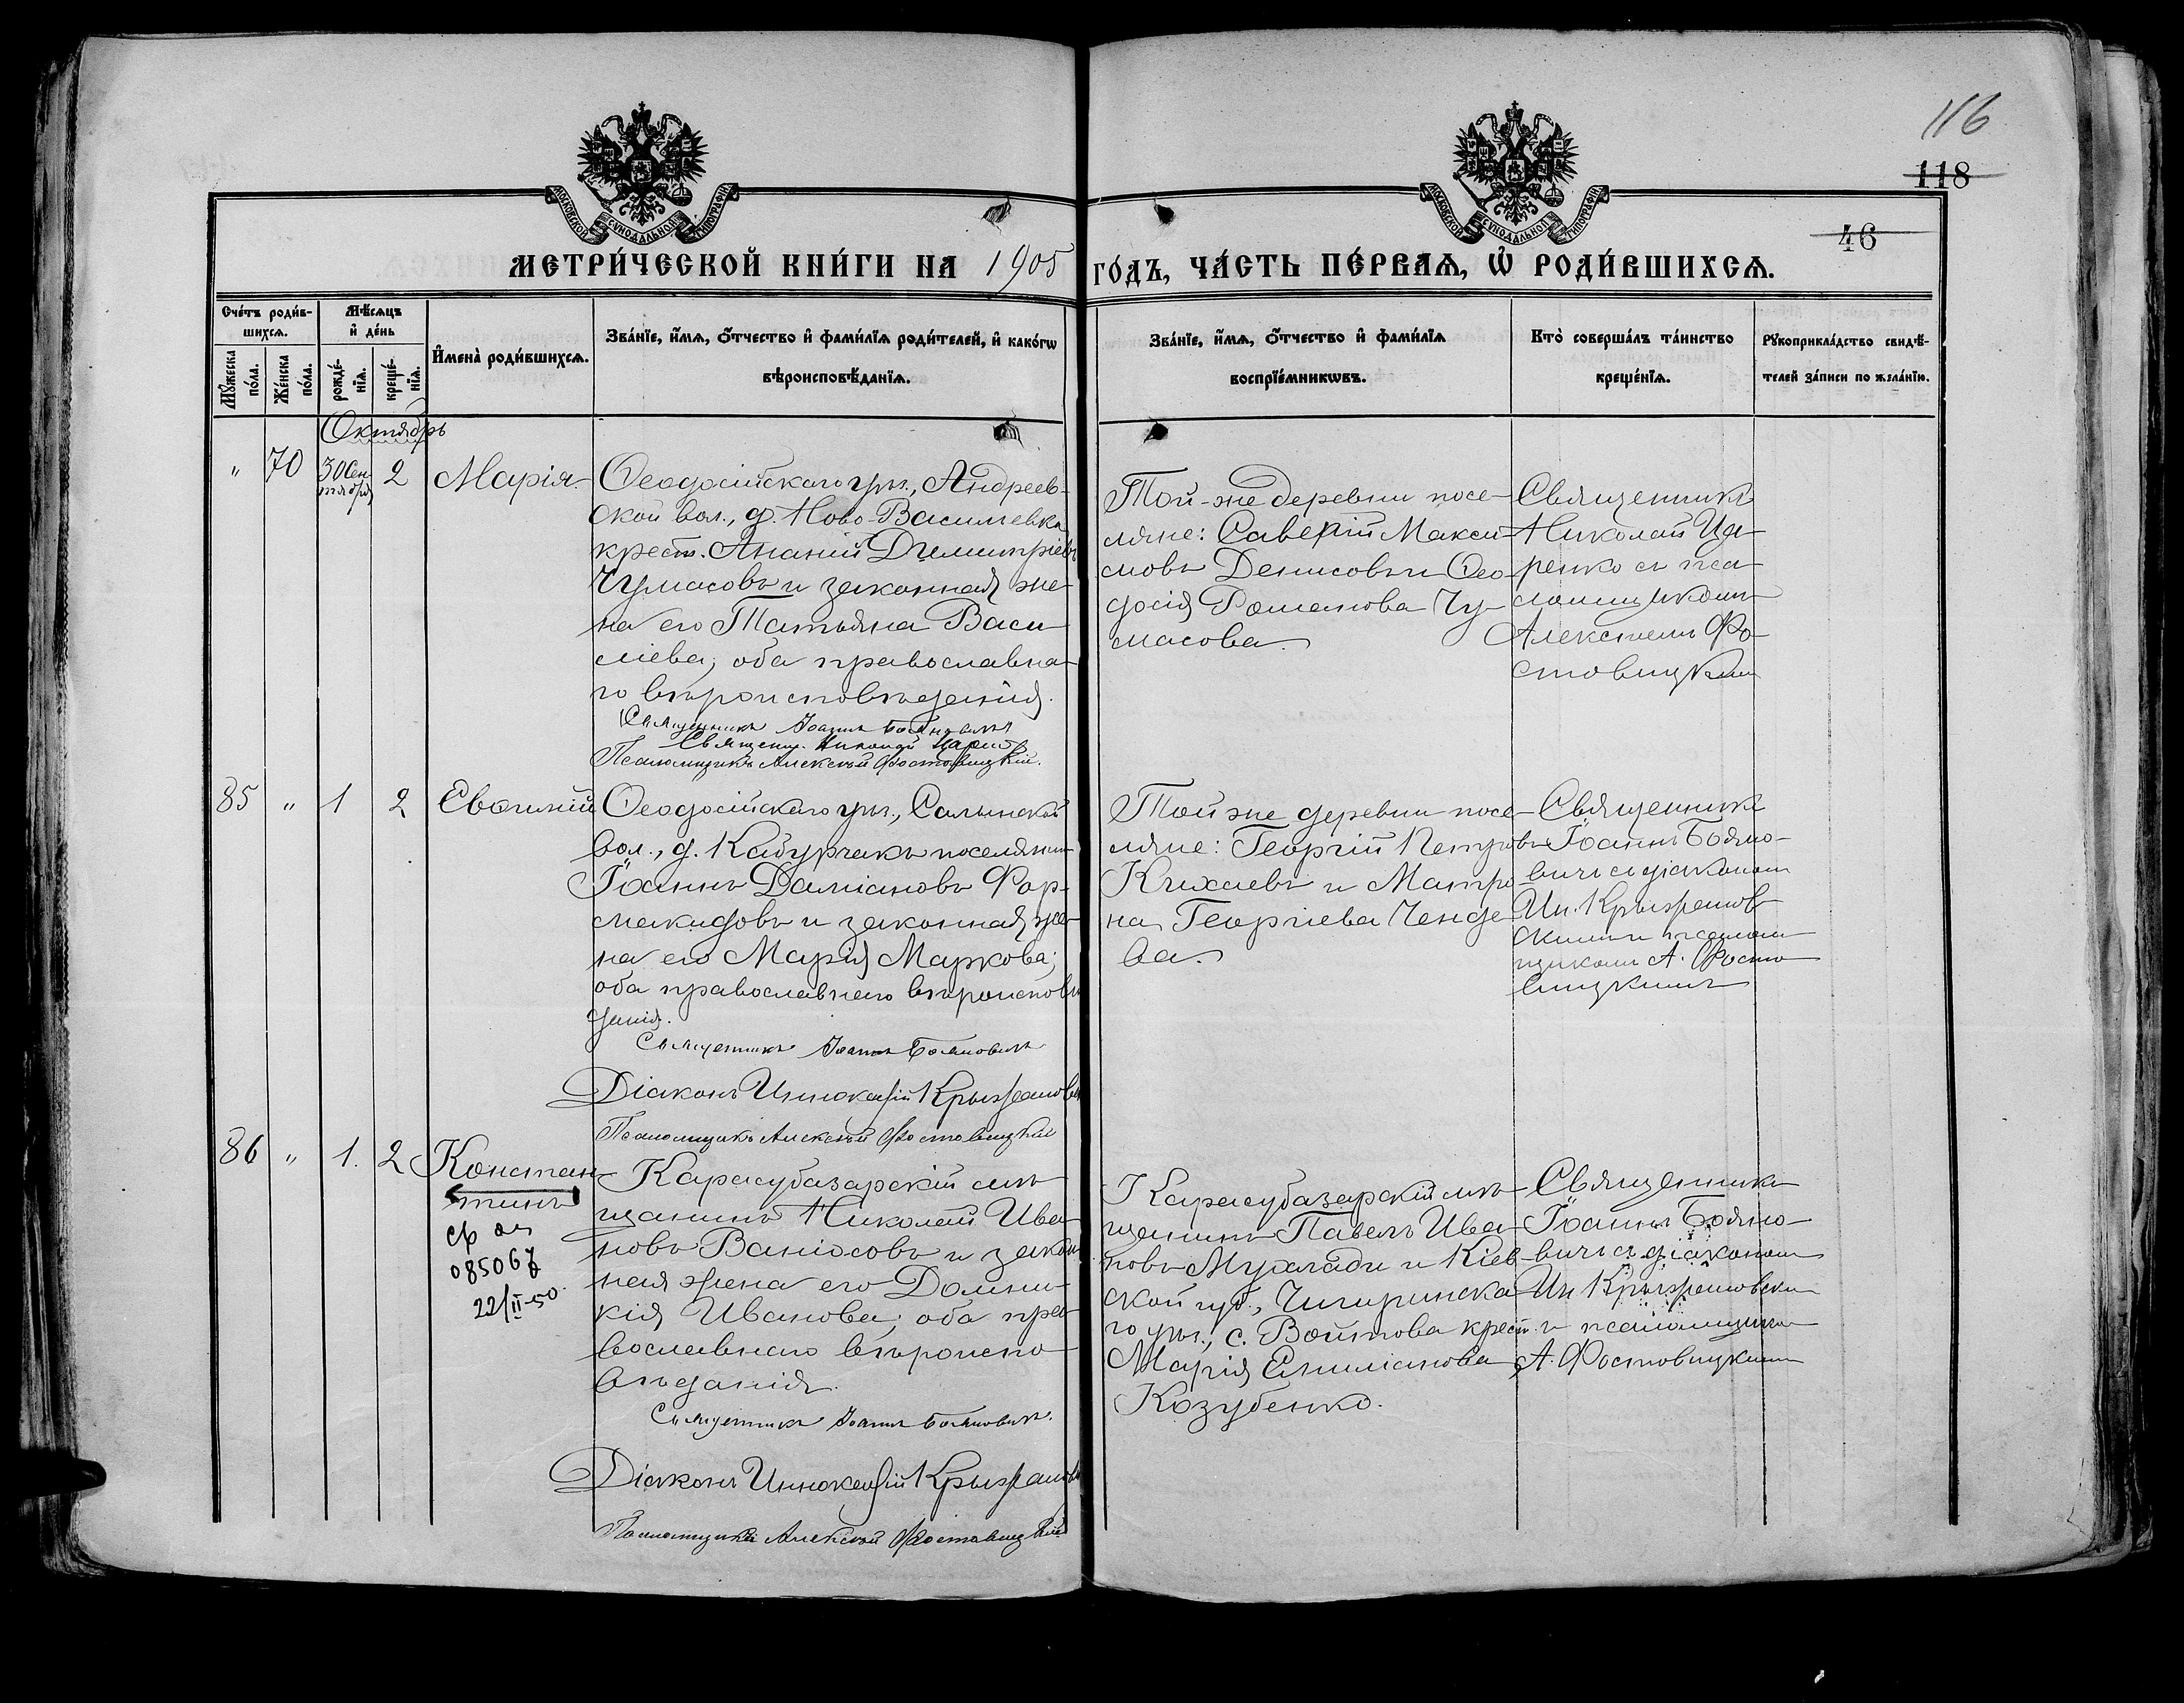 116
118
46
МОСКОВСКОЙ СУНОДАЛЬНОЙ ТИПОГРАФІИ
МОСКОВСКОЙ СУНОДАЛЬНОЙ ТИПОГРАФІИ
МЕТРИ́ЧЕСКОЙ КНИ́ГИ НА 1905 ГО́ДЪ, ЧА́СТЬ ПЕ́РВАѦ, Ѡ҆ РОДИ́ВШИХСѦ.
Сче́тъ роди́в-
шихсѧ.
Мѣ́сѧцъ
и҆ де́нь
Мꙋ́жеска по́ла.
Же́нска по́ла.
рожде́-
нїѧ.
креще́-
нїѧ.
И҆мена̀ роди́вшихсѧ.
Зва́нїе, и҆́мѧ, ѻ҆́тчество и҆ фами́лїѧ роди́телей, и҆ како́гѡ
вѣроисповѣ́данїѧ.
Зва́нїе, и҆́мѧ, ѻ҆́тчество и҆ фами́лїѧ
воспрїе́мникѡвъ.
Кто̀ соверша́лъ та́инство
креще́нїѧ.
Рꙋкоприкла́дство свидѣ́-
телей за́писи по жела́нїю.
Октябрь
" 70 30 Сен-
тября 2 Марія.
Ѳеодосійскаго у., Андреев-
ской вол., д. Ново-Васильевка
крест. Ананій Димитріевъ
Чумасовъ и законная же-
на его Татьяна Васи-
ліева; оба православна-
го вѣроисповѣданія.
Священникъ Іоаннъ Бояновичъ
Священ. Николай Царенко
Псаломщикъ Алексѣй Фостовицкій.
Той-же деревни посе-
ляне: Саверій Макси-
мовъ Денисовъ и Ѳео-
досія Романова Чу-
масова.
Священникъ
Николай Ца-
ренко съ пса-
ломщикомъ
Алексѣемъ Фо-
стовицкимъ
85 " 1 2 Евѳимій
Ѳеодосійскаго у., Салынской
вол., д. Кабурчакъ поселянинъ
Іоаннъ Даміановъ Фор-
макидовъ и законная же-
на его Марія Маркова;
оба православнаго вѣроисповѣ-
данія.
Священникъ Іоаннъ Бояновичъ
Діаконъ Иннокентій Крыжановскій
Псаломщикъ Алексѣй Фостовицкій
Той же деревни посе-
ляне: Георгій Петровъ
Кихаевъ и Матро-
на Георгіева Ченде-
ва.
Священникъ
Іоаннъ Бояно-
вичъ съ діакономъ
Ин. Крыжанов-
скимъ и псалом-
щикомъ А. Фосто-
вицкимъ
86 " 1. 2 Констан-
тинъ
085067
22/II-50.
Карасубазарскій мѣ-
щанинъ Николай Ива-
новъ Ваніосовъ и закон-
ная жена его Домни-
кія Иванова; оба пра-
вославнаго вѣроиспо-
вѣданія.
Священникъ Іоаннъ Бояновичъ.
Діаконъ Иннокентій Крыжановскій
Псаломщикъ Алексѣй Фостовицкій
Карасубазарскій мѣ-
щанинъ Павелъ Ива-
новъ Мухлади и Кіев-
ской губ., Чигиринска-
го у., с. Войтова крест.
Марія Емиліанова
Козубенко.
Священникъ
Іоаннъ Бояно-
вичъ съ діакономъ
Ин. Крыжановским
и псаломщикомъ
А. Фостовицкимъ